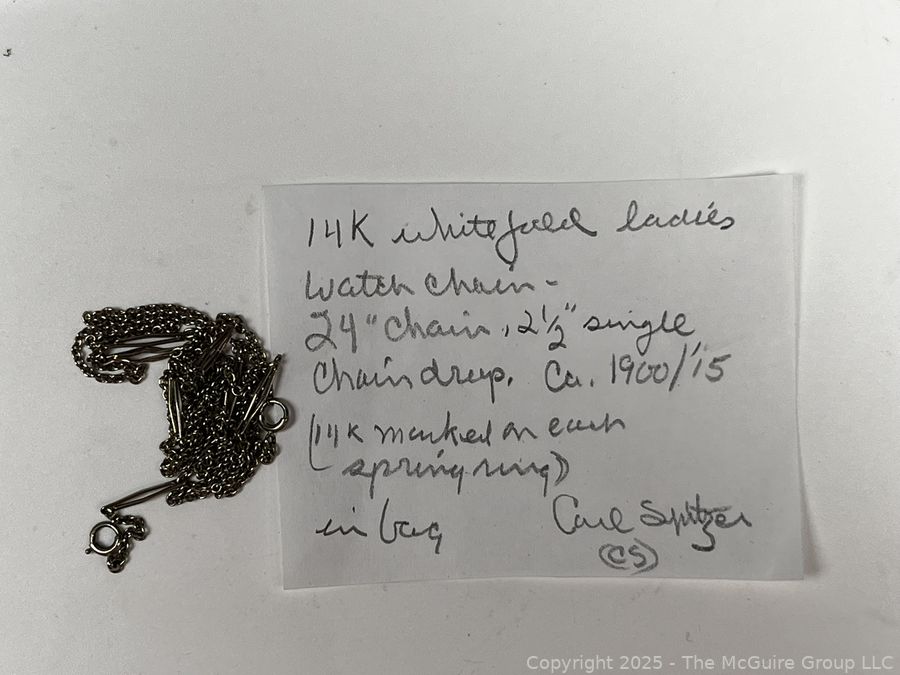 14K white gold ladies
watch chain -
24" chain, 2½" single
chain drop. Ca. 1900/'15
(14K marked on each
spring ring)
in bag Carl Spitzer
(CS)
Copyright 2025 - The McGuire Group LLC